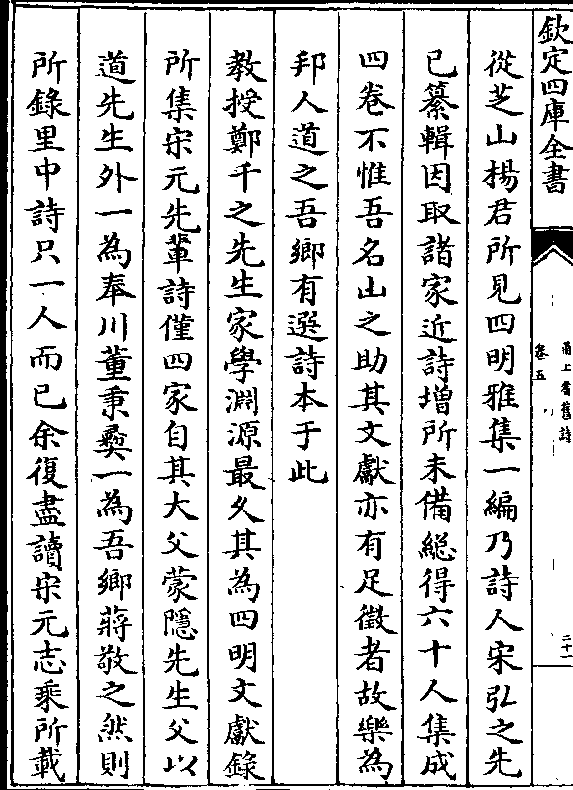 欽定四庫全書
甬上耆舊詩
卷五
二十一
從芝山楊君所見四明雅集一編乃詩人宋弘之先
已纂輯因取諸家近詩增所未備總得六十人集成
四卷不惟吾名山之助其文獻亦有足徵者故樂為
邦人道之吾鄉有選詩本于此
教授鄭千之先生家學淵源最久其為四明文獻錄
所集宋元先輩詩僅四家自其大父蒙隱先生父以
道先生外一為奉川董秉彝一為吾鄉蔣敬之然則
所錄里中詩只一人而已余復盡讀宋元志乘所載